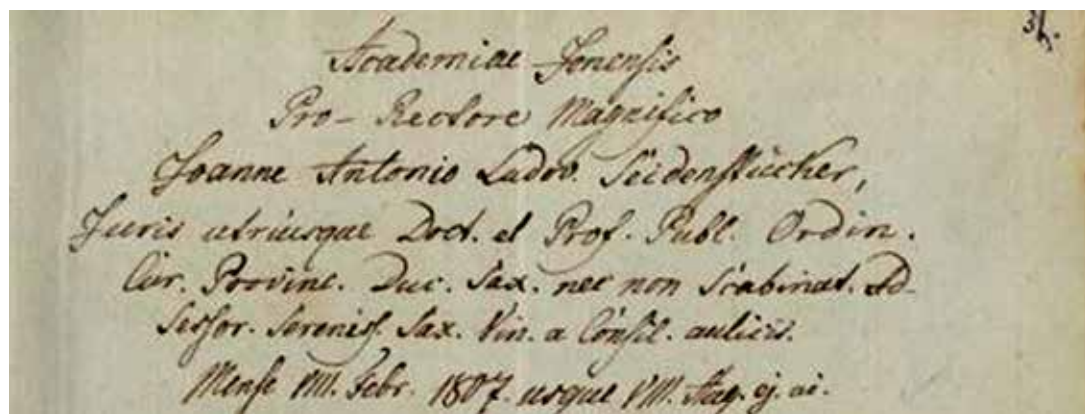 Academiae Jenensis
Pro-Rectore Magnifico
Joanne Antonio Ludov. Seidensticker,
Juris utriusque Doct. et Prof. Publ. Ordin.
Cur. Provinc. Duc. Sax. nec non Scabinat. Ad-
sessor. Sereniss. Sax. Vin. a Consil. aulicis.
Mense VIII. Febr. 1807. usque VIII. Aug. ej. ai.